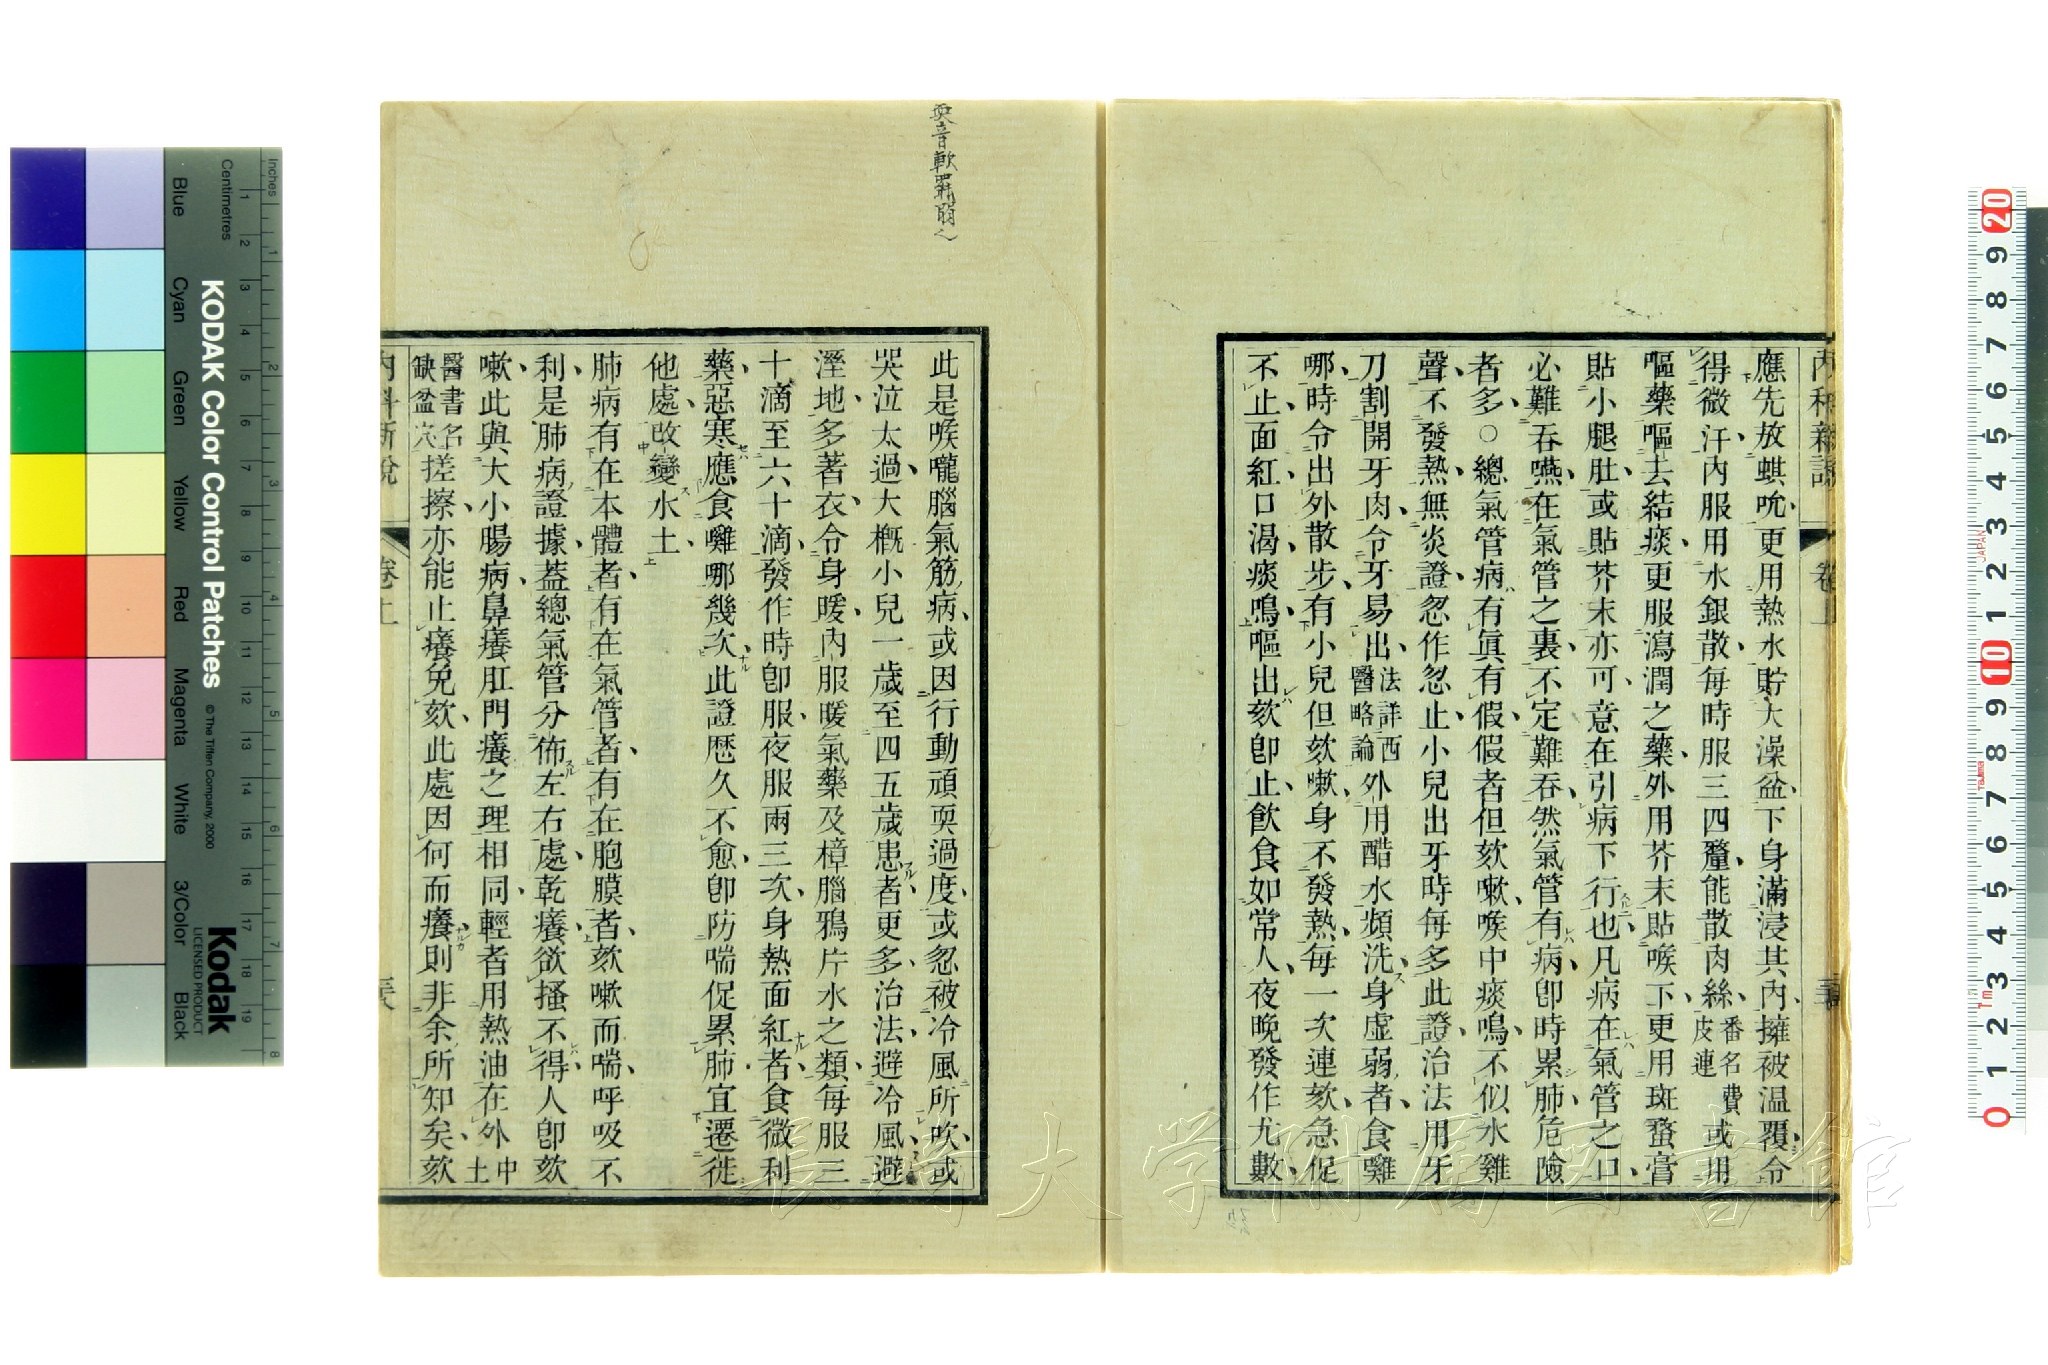 內科新說
卷上
應先放蜞吮更用熱水貯大澡盆下身滿浸其內擁被温覆令
得微汗內服用水銀散每時服三四釐能散肉絲番名費皮連或用
嘔藥嘔去結痰更服瀉潤之藥外用芥末貼喉下更用斑蝥膏
貼小腿肚或貼芥末亦可意在引病下行也凡病在氣管之口
必難吞嚥在氣管之裏不定難吞然氣管有病卽時累肺危險
者多○總氣管病有眞有假假者但欬嗽喉中痰鳴不似水雞
聲不發熱無炎證忽作忽止小兒出牙時每多此證治法用牙
刀割開牙肉令牙易出法詳西醫略論外用醋水頻洗身虛弱者食雞
哪時令出外散步有小兒但欬嗽身不發熱每一次連欬急促
不止面紅口渴痰鳴嘔出欬卽止飮食如常人夜晚發作尤數
耎音軟罷弱人
此是喉嚨腦氣筋病或因行動頑耎過度或忽被冷風所吹或
哭泣太過大概小兒一歲至四五歲患者更多治法避冷風避
溼地多著衣令身暖內服暖氣藥及樟腦鴉片水之類每服三
十滴至六十滴發作時卽服夜服兩三次身熱面紅者食微利
藥惡寒應食囄哪幾次此證歷久不愈卽防喘促累肺宜遷徙
他處改變水土
肺病有在本體者有在氣管者有在胞膜者欬嗽而喘呼吸不
利是肺病證據葢總氣管分佈左右處乾癢欲搔不得人卽欬
嗽此與大小腸病鼻癢肛門癢之理相同輕者用熱油在外中土
醫書名缺盆穴搓擦亦能止癢免欬此處因何而癢則非余所知矣欬
內科新說
卷上
KODAK Color Control Patches
© The Tiffen Company, 2000
Kodak
LICENSED PRODUCT
Inches
Centimetres
Blue
Cyan
Green
Yellow
Red
Magenta
White
3/Color
Black
長崎大学附属図書館